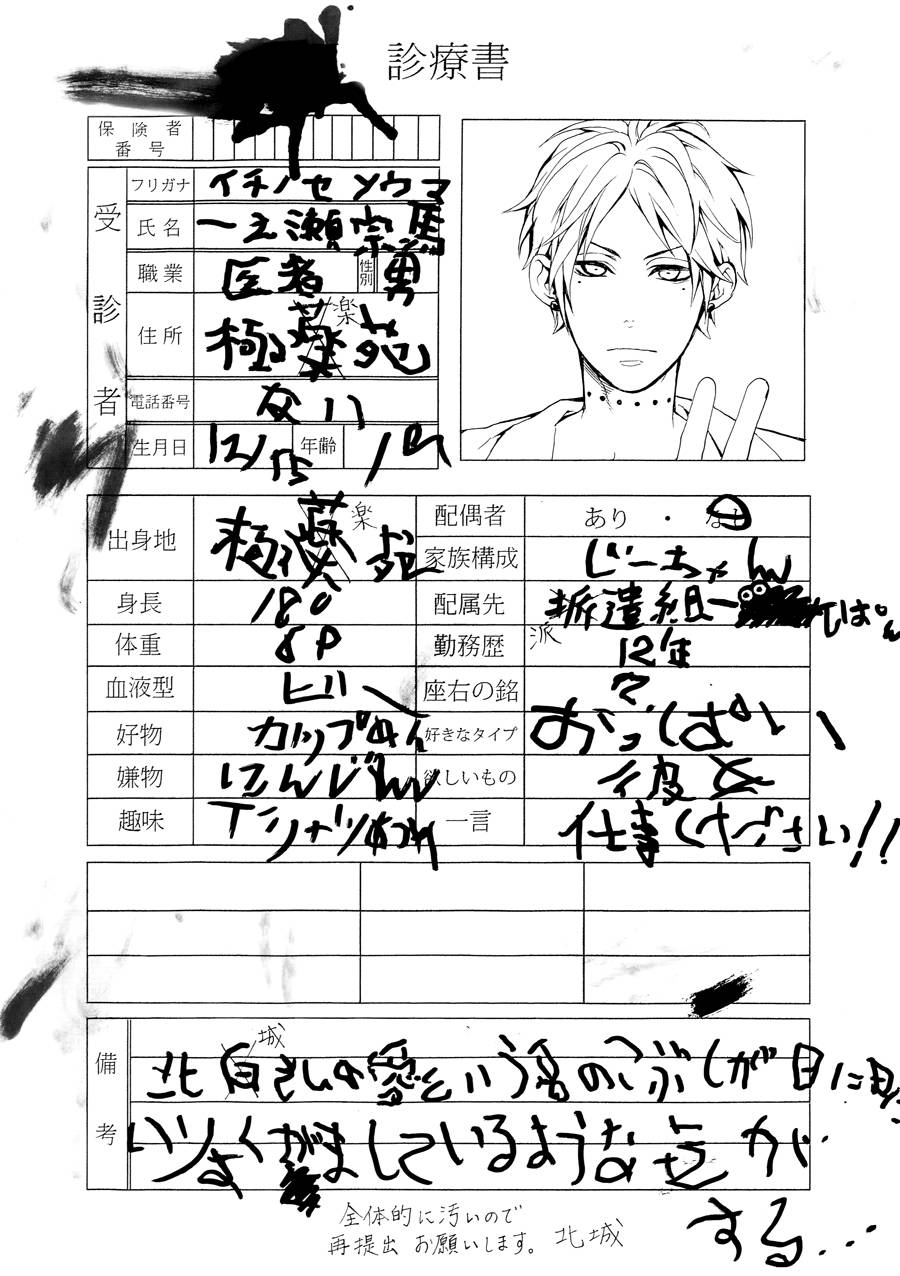 診療書
保険者番号
受診者
フリガナ イチノセ ソウマ
氏名 一之瀬宗馬
職業 医者 性別 男
住所 極楽苑
電話番号 ない
生月日 12/15 年齢 19
出身地 極楽苑
配偶者 あり ・ なし
家族構成 じーちゃん
身長 180
配属先 派遣組一
体重
派
勤務歴 12年
血液型 ビー
座右の銘 ?
好物 カップめん
好きなタイプ おっぱい
嫌物 にんじん
欲しいもの 彼女
趣味 Tシャツあつめ
一言 仕事ください!!
備考
城
北白さんの愛という名のこぶしが日に日に
いりょくがましているような気が
する...
全体的に汚いので
再提出 お願いします。 北城